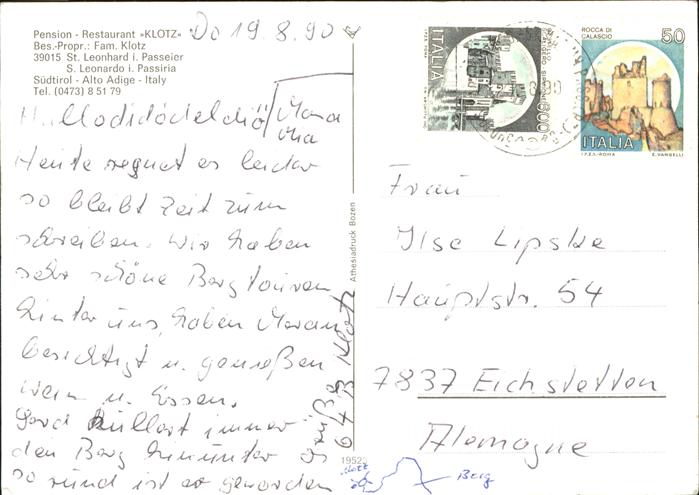 Pension - Restaurant »KLOTZ«
Bes.-Propr.: Fam. Klotz
39015 St. Leonhard i. Passeier
S. Leonardo i. Passiria
Südtirol - Alto Adige - Italy
Tel. (0473) 8 51 79
Do 19.8.90
Hallodidödeldiö
Heute regnet es leider
so bleibt Zeit zum
schreiben. Wir haben
sehr schöne Bergtouren
hinter uns, haben Meran
besichtigt u. genießen
Wein u. Essen.
Gerd kullert immer
den Berg hinunter
so rund ist er geworden
Grüße
Klotz
Athesiadruck Bozen
1952
Klotz
Berg
ITALIA
ROCCA DI
CALASCIO
50
ITALIA
I.P.Z.S.-ROMA
E. VANGELLI
Frau
Ilse Lipske
Hauptstr. 54
7837 Eichstetten
Alemagne